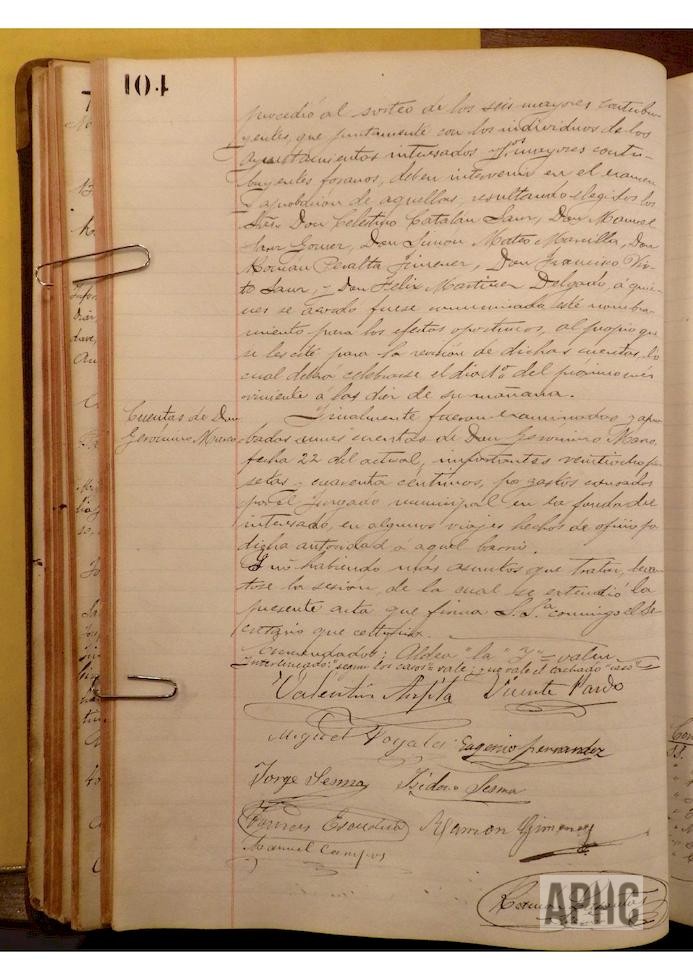 104
procedió al sorteo de los seis mayores contribu-
yentes, que juntamente con los individuos de los
Ayuntamientos interesados y mayores contri-
buyentes foranos, deben intervenir en el examen
y aprobación de aquellas, resultando elegidos los
Sres. Don Celestino Catalan Saur, Don Manuel
Gomez, Don Simon Mateo Mancilla, Don
Román Peralta Jimenez, Don Francisco
Saur, y Don Felix Martinez Delgado, á quie-
nes se acordó fuese comunicado este nombra-
miento para los efectos oportunos, al propio que
se les cite para la revisión de dichas cuentas, lo
cual deberá celebrarse el dia del proximo mes
viniente á las diez de su mañana.
Cuentas de Don
Gerónimo
Finalmente fueron examinadas y apro-
badas unas cuentas de Don Geronimo
fecha 22 del actual, importantes veintiocho pe-
setas y cuarenta centimos, por gastos causados
por el Juzgado municipal en la fonda del
interesado, en algunos viajes hechos de oficio por
dicha autoridad á aquel barrio.
Y no habiendo más asuntos que tratar, levan-
tose la sesión, de la cual se extendió la
presente acta que firma S.Sª conmigo el Se-
cretario que certifico.
Enmendados: Aldea "la" "Y" = valen
Interlineado: "segun los casos" vale; = no vale el tachado
Valentin Vicente Pardo
Miguel Eugenio Fernandez
Jorge Sesma Isidoro Sesma
Escudero Ramon Gimenez
Manuel Campos
APHC